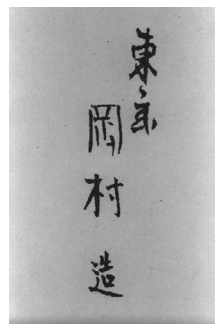 東
岡村造